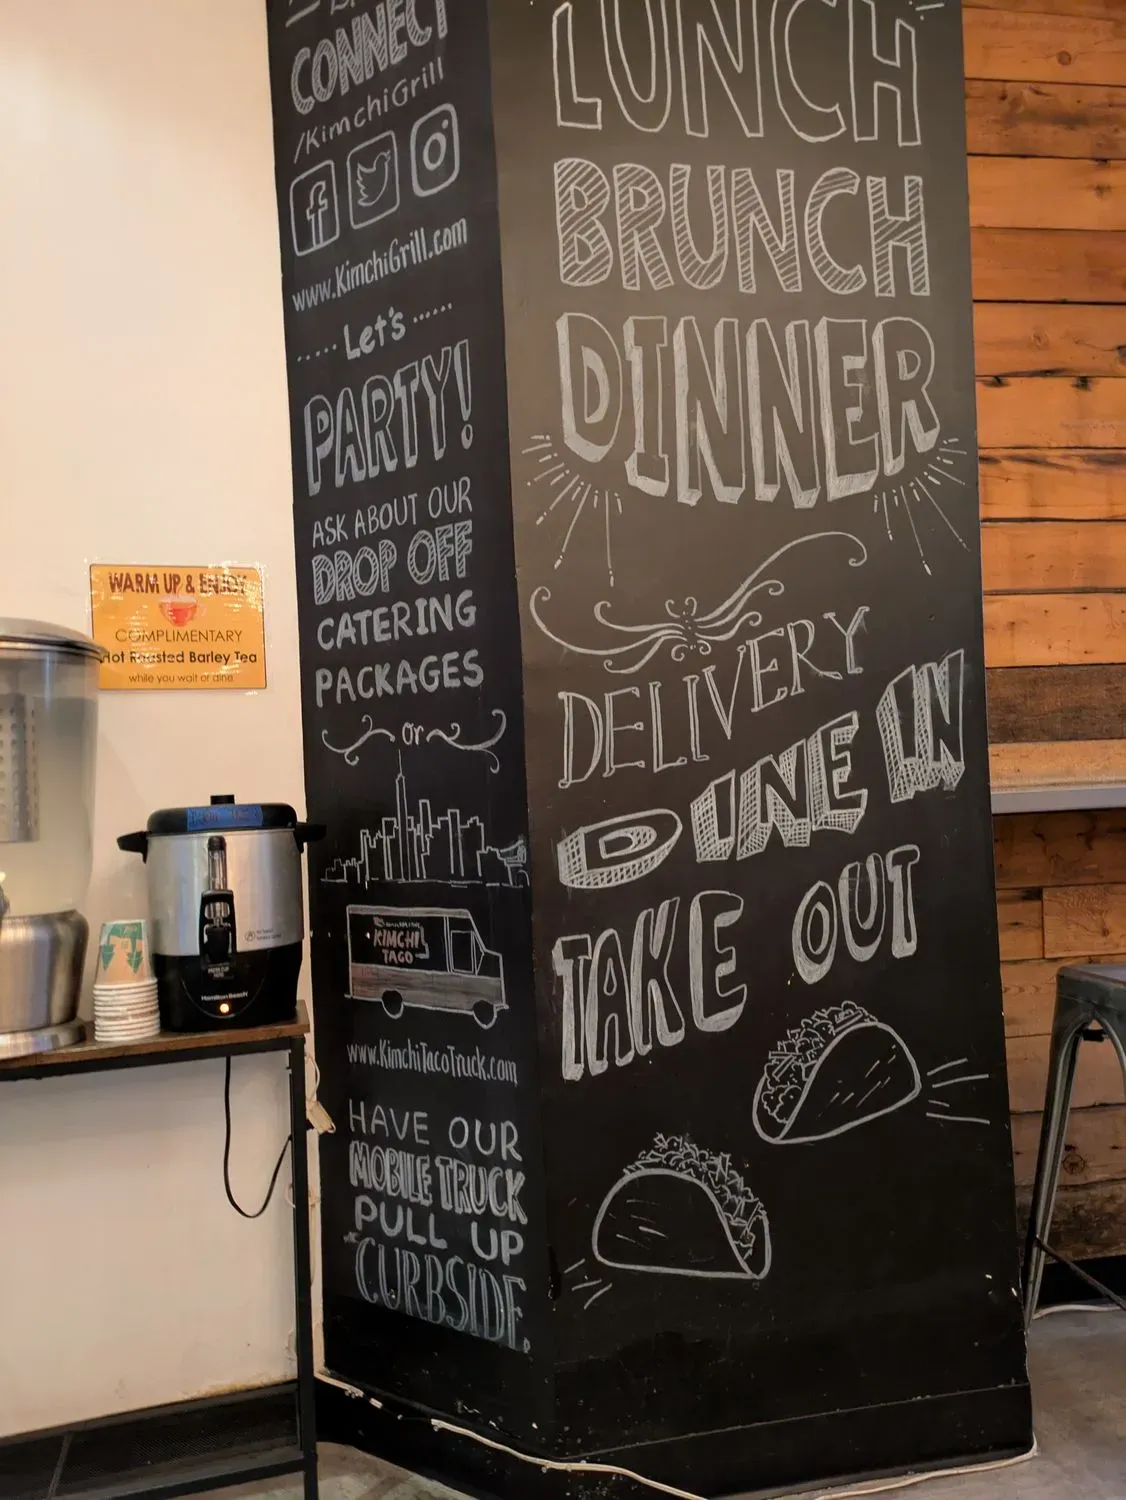 CONNECT
/KimchiGrill
www.KimchiGrill.com
Let's
PARTY!
ASK ABOUT OUR
DROP OFF
CATERING
PACKAGES
or
KIMCHI
TACO
www.KimchiTacoTruck.com
HAVE OUR
MOBILE TRUCK
PULL UP
CURBSIDE.
LUNCH
BRUNCH
DINNER
DELIVERY
DINE IN
TAKE OUT
WARM UP & ENJOY
COMPLIMENTARY
Hot Roasted Barley Tea
while you wait or dine
HamiltonBeach